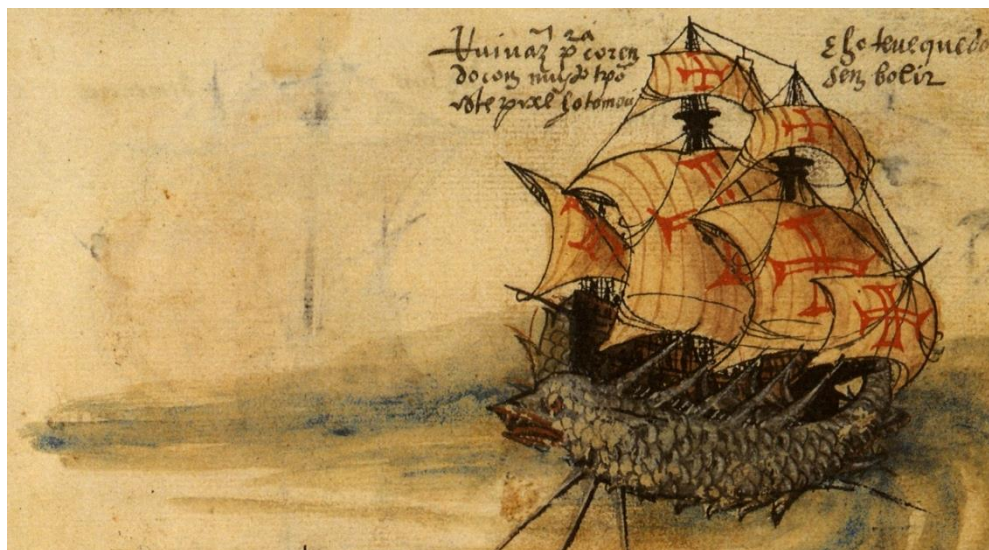 Ruivaz pra coren
do com muyto tpo
este pexe ho tomou
E ho teue quedo
sem bolir